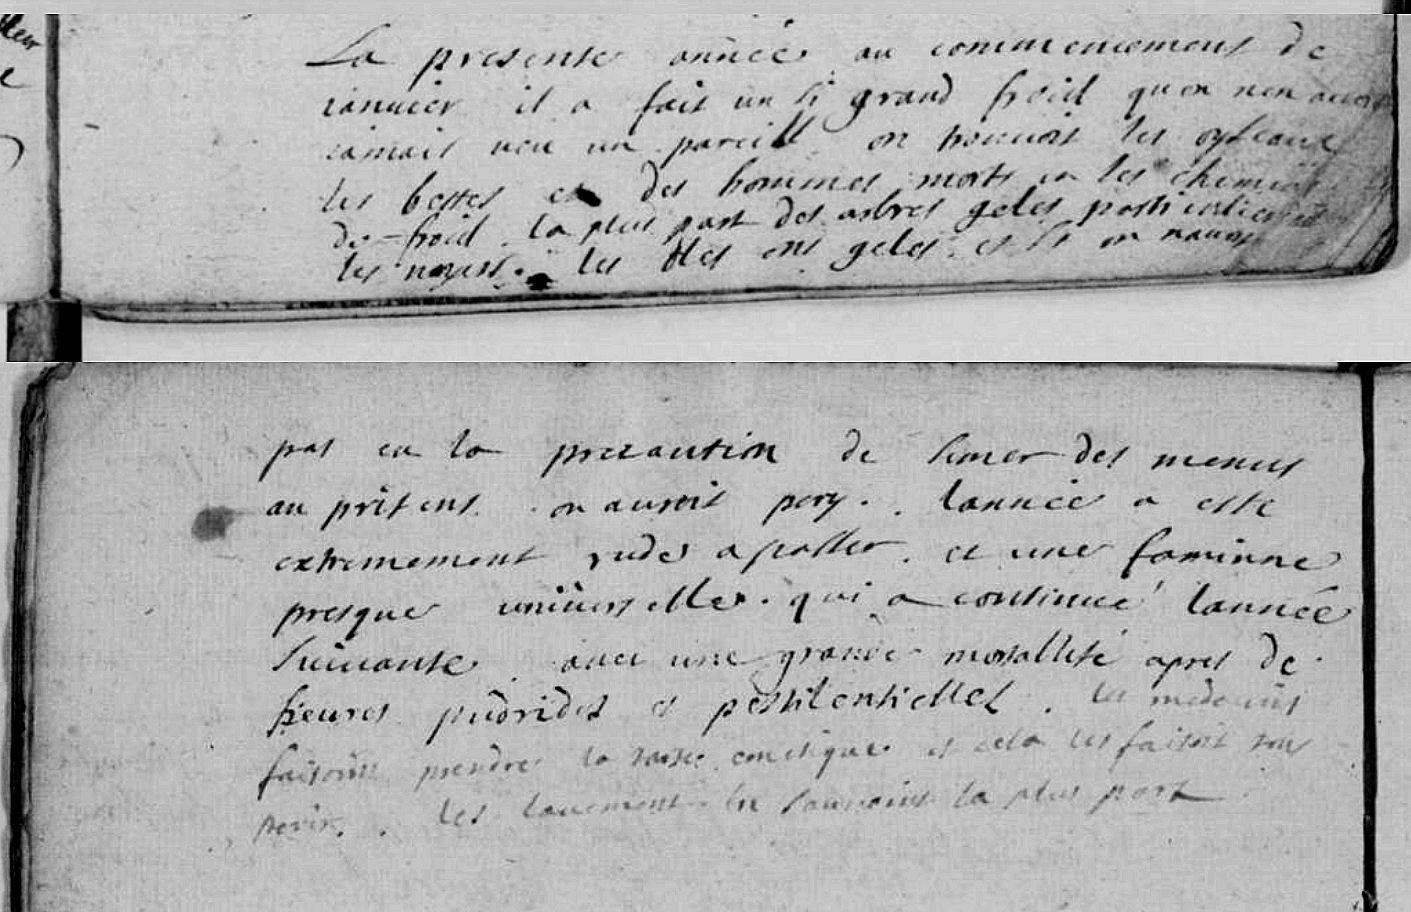 La presente année au commencement de
ianuier il a fait un si grand froid quon nen auoit
iamais veu un pareill on trouuoit les oyseaux
les bestes et des hommes morts en les chemins
de froid la plus part des arbres geles particulierement
les noyers. les bles ont geles. et si on nauoit
pas eu la precaution de semer des menus
au printens. on auroit pery. lannée a este
extremement rude a passer. et une faminne
presque uniuerselle. qui a continué lannée
suiuante auec une grande mortallité apres de
fieures pudrides et pestilentielles. les medecins
faisoint prendre la et cela les faisoit tous
perir. les lauements en sauuoint la plus part